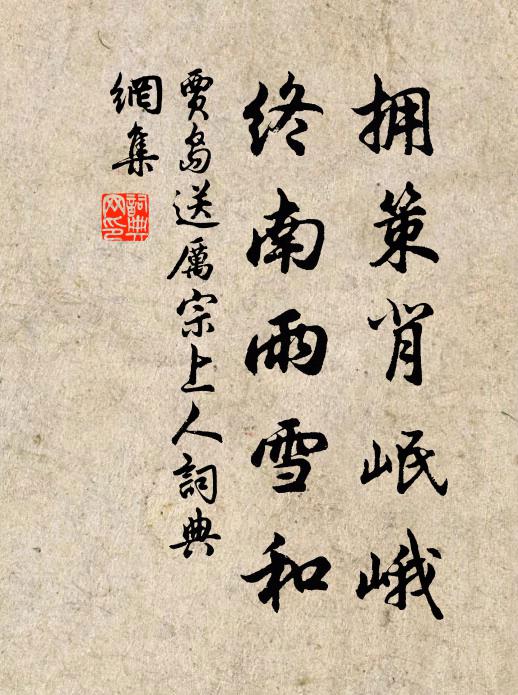 拥策背岷峨
终南雨雪和
贾岛送厲宗上人詞典
網集
詞典
网印